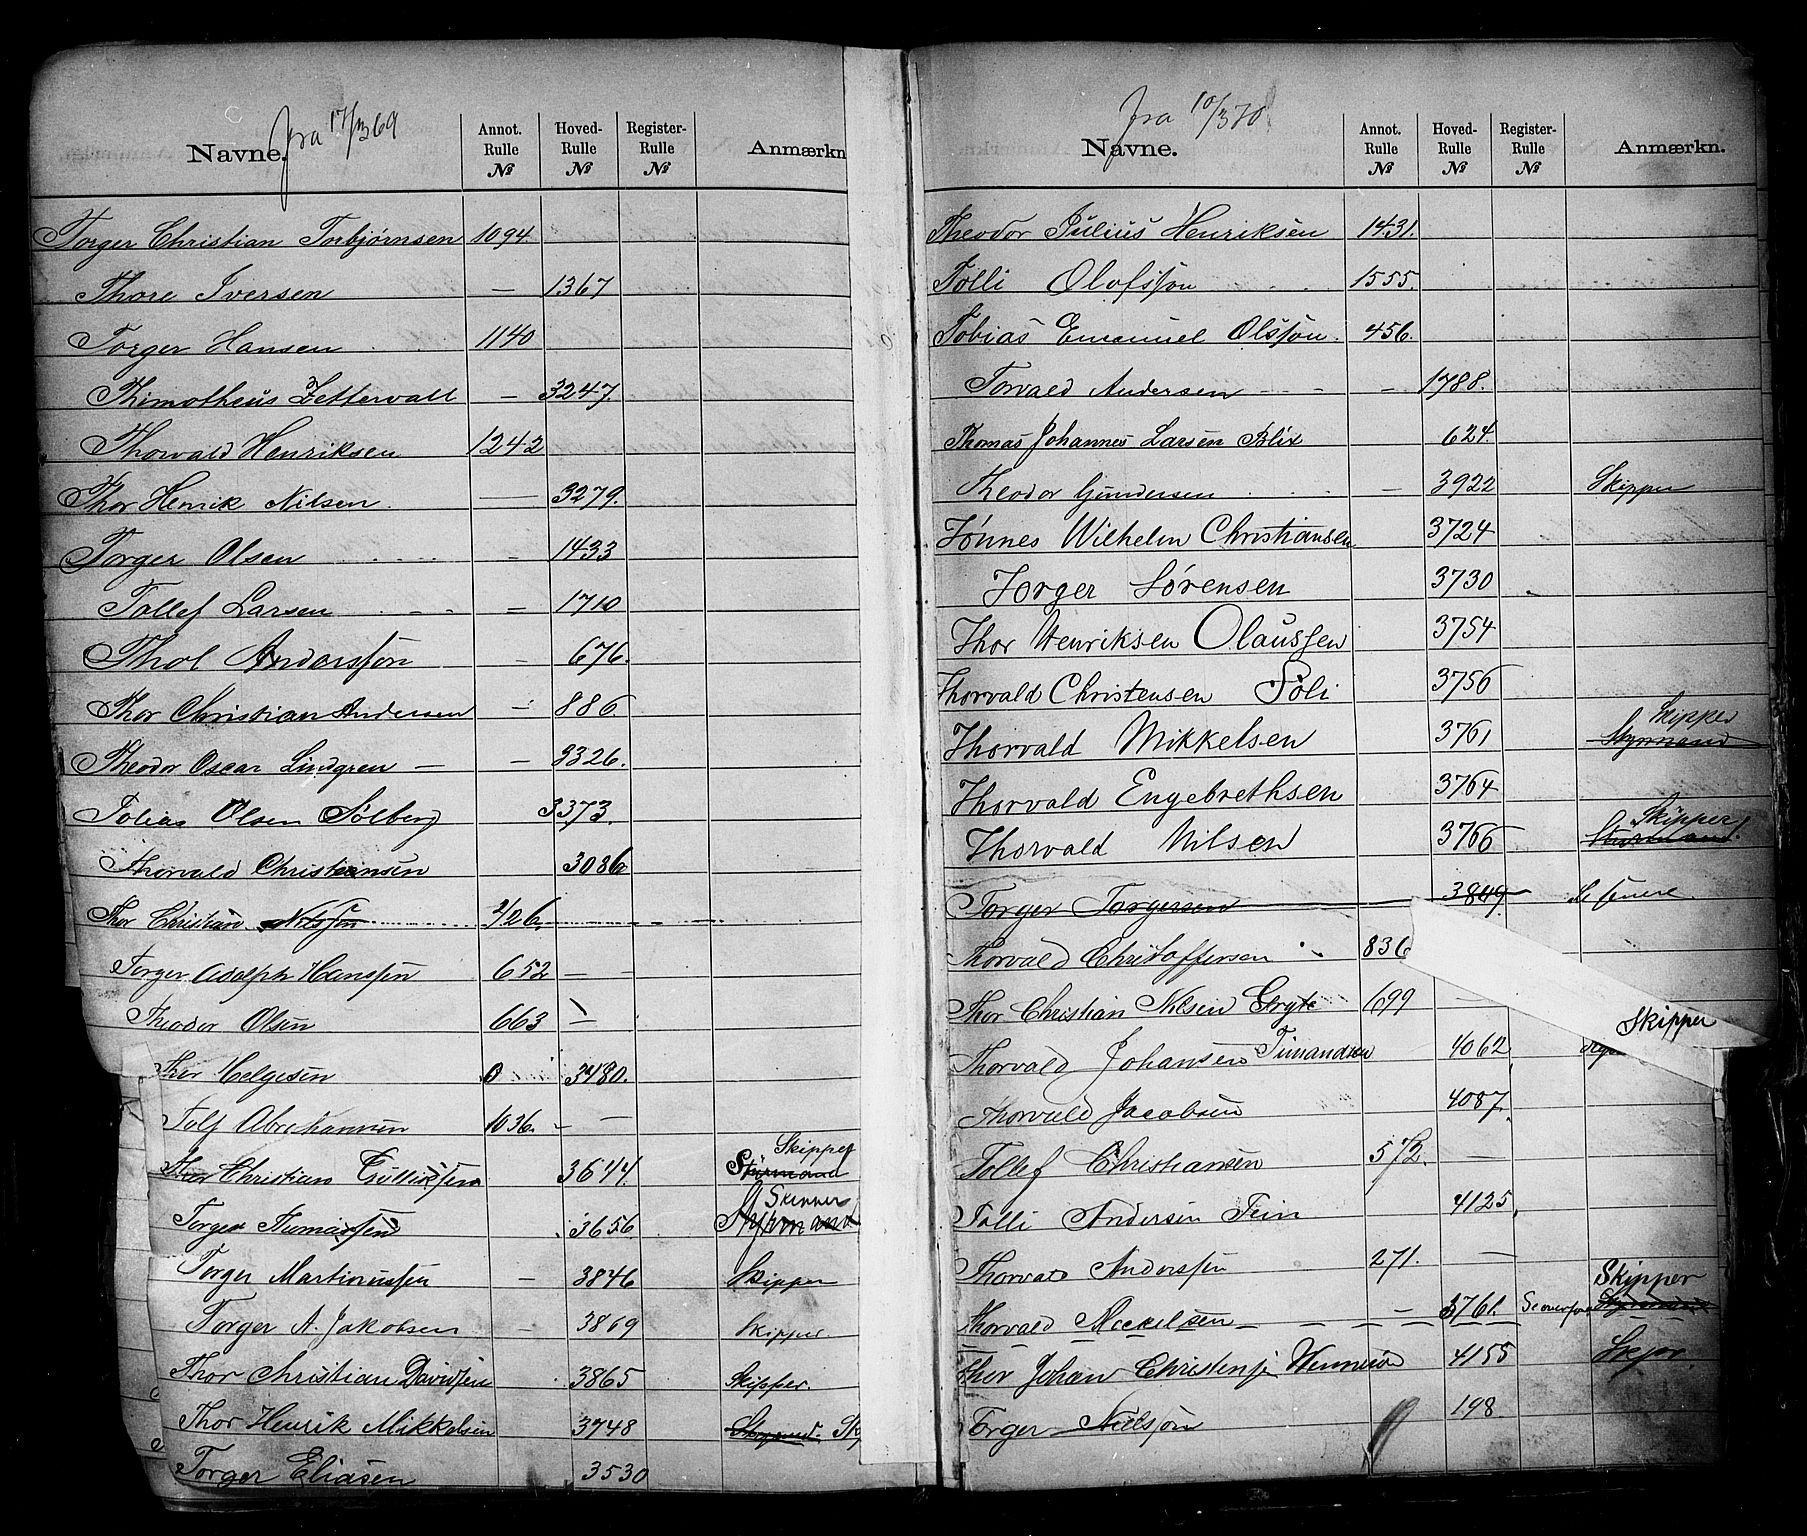 fra 17/3 69
Navne. Annot. Rulle № Hoved- Rulle № Register- Rulle № Anmærkn
Torger Christian Torbjørnsen 1094.
Thore Iversen — 1367
Torger Hansen 1140
Thimotheus Zettervall — 3247.
Thorvald Henriksen 1242
Thor Henrik Nilsen — 3279.
Torger Olsen — 1433
Tollef Larsen — 1710
Thol Anderssøn — 676.
Thor Christian Andersen — 886.
Theodor Oscar Lindgren — — 3326.
Tobias Olsen Sølberg 3373.
Thorvald Christensen 3086
Thor Christian Nilssøn 426.
Torger Adolph Hanssen 652 —
Theodor Olsen 663 —
Thor Helgesen 0 3480.
Tolf Abrahamsen 1036. — —
Skipper
Thor Christian Gullissen 3644. Stürmand
Skipper
Torger Thomassen 3656 Styrmand
Torger Martinussen — 3846 Skipper
Torger A. Jakobsen — 3869 Skipper.
Thor Christian Davidsen 3865 Skipper.
Thor Henrik Mikkelsen 3748 Styrmd. Sk
Torger Eliasen 3530
fra 10/3 70
Navne. Annot. Rulle № Hoved- Rulle № Register- Rulle № Anmærkn.
Theodor Julius Henriksen 1431.
Tolli Olofsson 1555.
Tobias Emanuel Olsson. 456.
Torvald Andersen — — 1788.
Thomas Johannes Larsen Blix 624.
Theodor Gundersen — 3922 Skipper
Tønnes Wilhelm Christiansen 3724
Torger Sørensen 3730
Thor Henriksen Olaussen 3754
Thorvald Christensen Soli 3756
Skipper
Thorvald Mikkelsen 3761 Styrmand
Thorvald Engebrethsen 3764
Skipper
Thorvald Nilsen 3766 Styrmand
Torger Torgersen 3849
Thorvald Christoffersen 836
Thor Christian Nilsen Gryte 699 —
Skipper
Thorvald Johansen Timandsen 4062
Thorvald Jacobsen 4087.
Tollef Christiansen 572. —
Tolli Andersen Tein 4125.
Thorvald Anderssen 271. —
Skipper
Thorvald Mickelsen — 3761. Se ovenfor Styrmand
Thor Johan Christensen 4155 Skpr.
Torger Nielsøn 198.